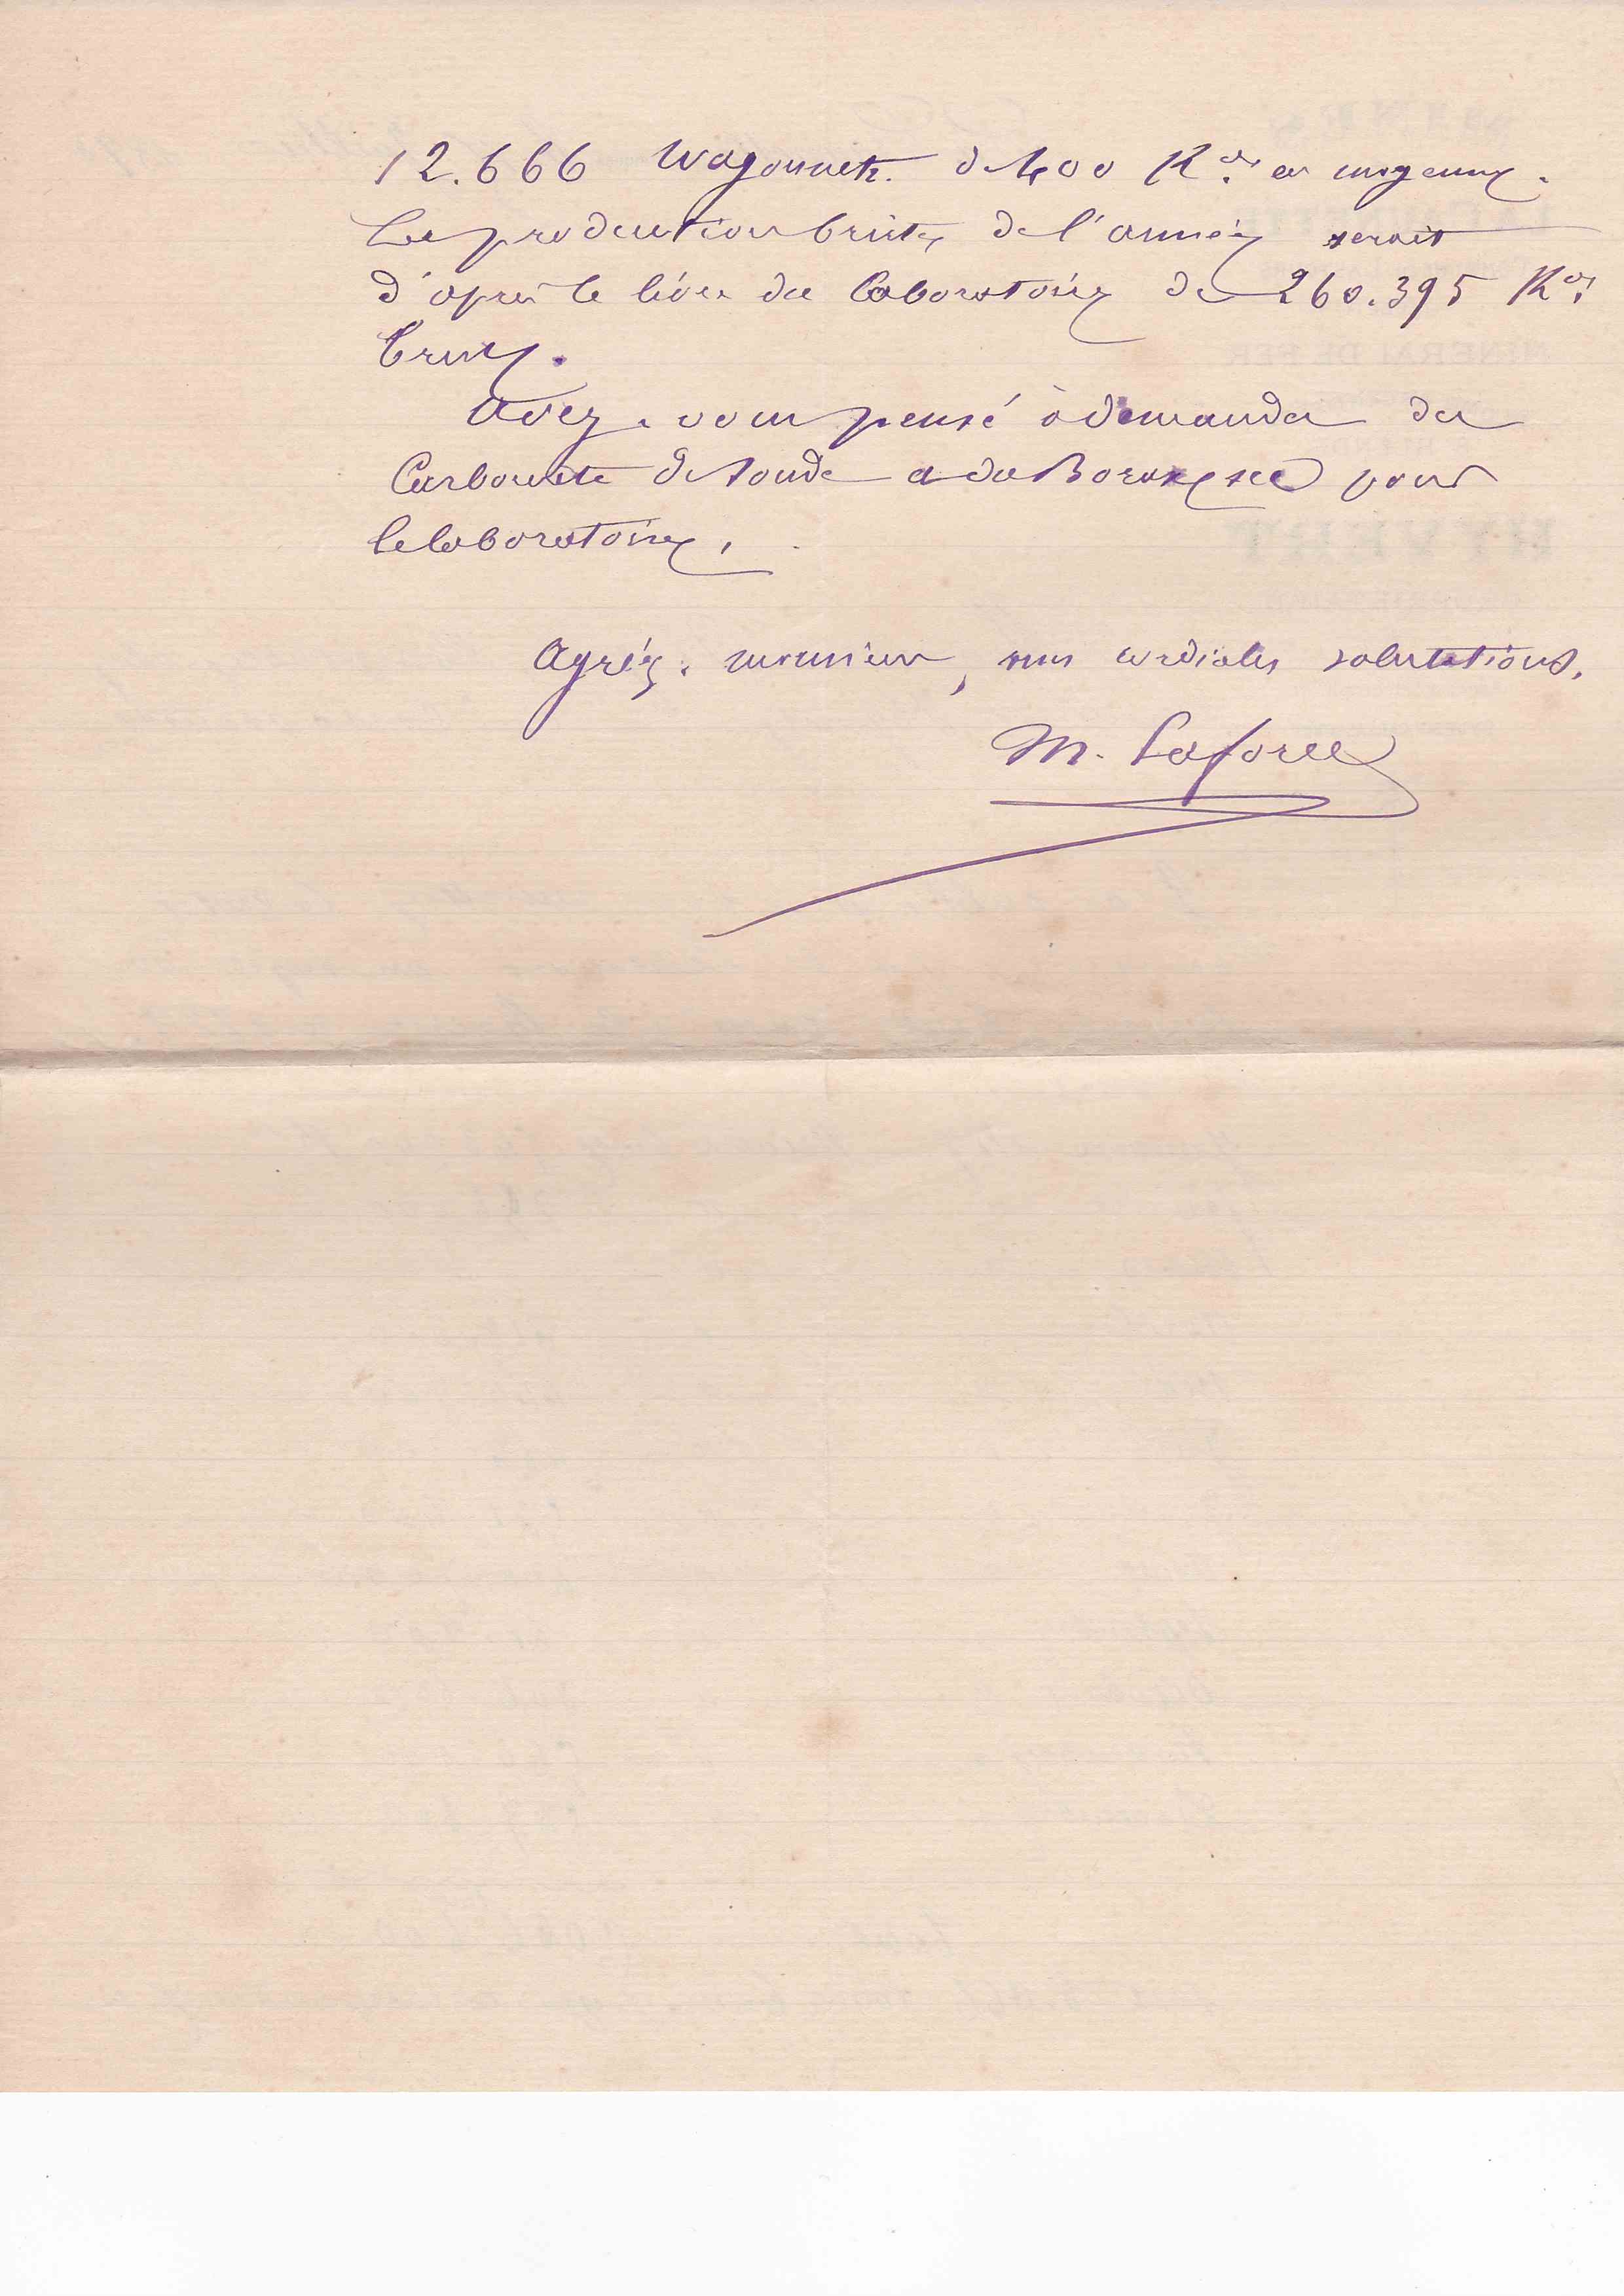 12.666 Wagonnets de 400 Kos en moyenne.
La production brute de l'année serait
d'après le livre du laboratoire de 260.395 Kos
bruts.
Avez-vous pensé à demander du
Carbonate de soude et du Borax sec pour
le laboratoire.
Agréez, monsieur, mes cordiales salutations.
M. Laforce